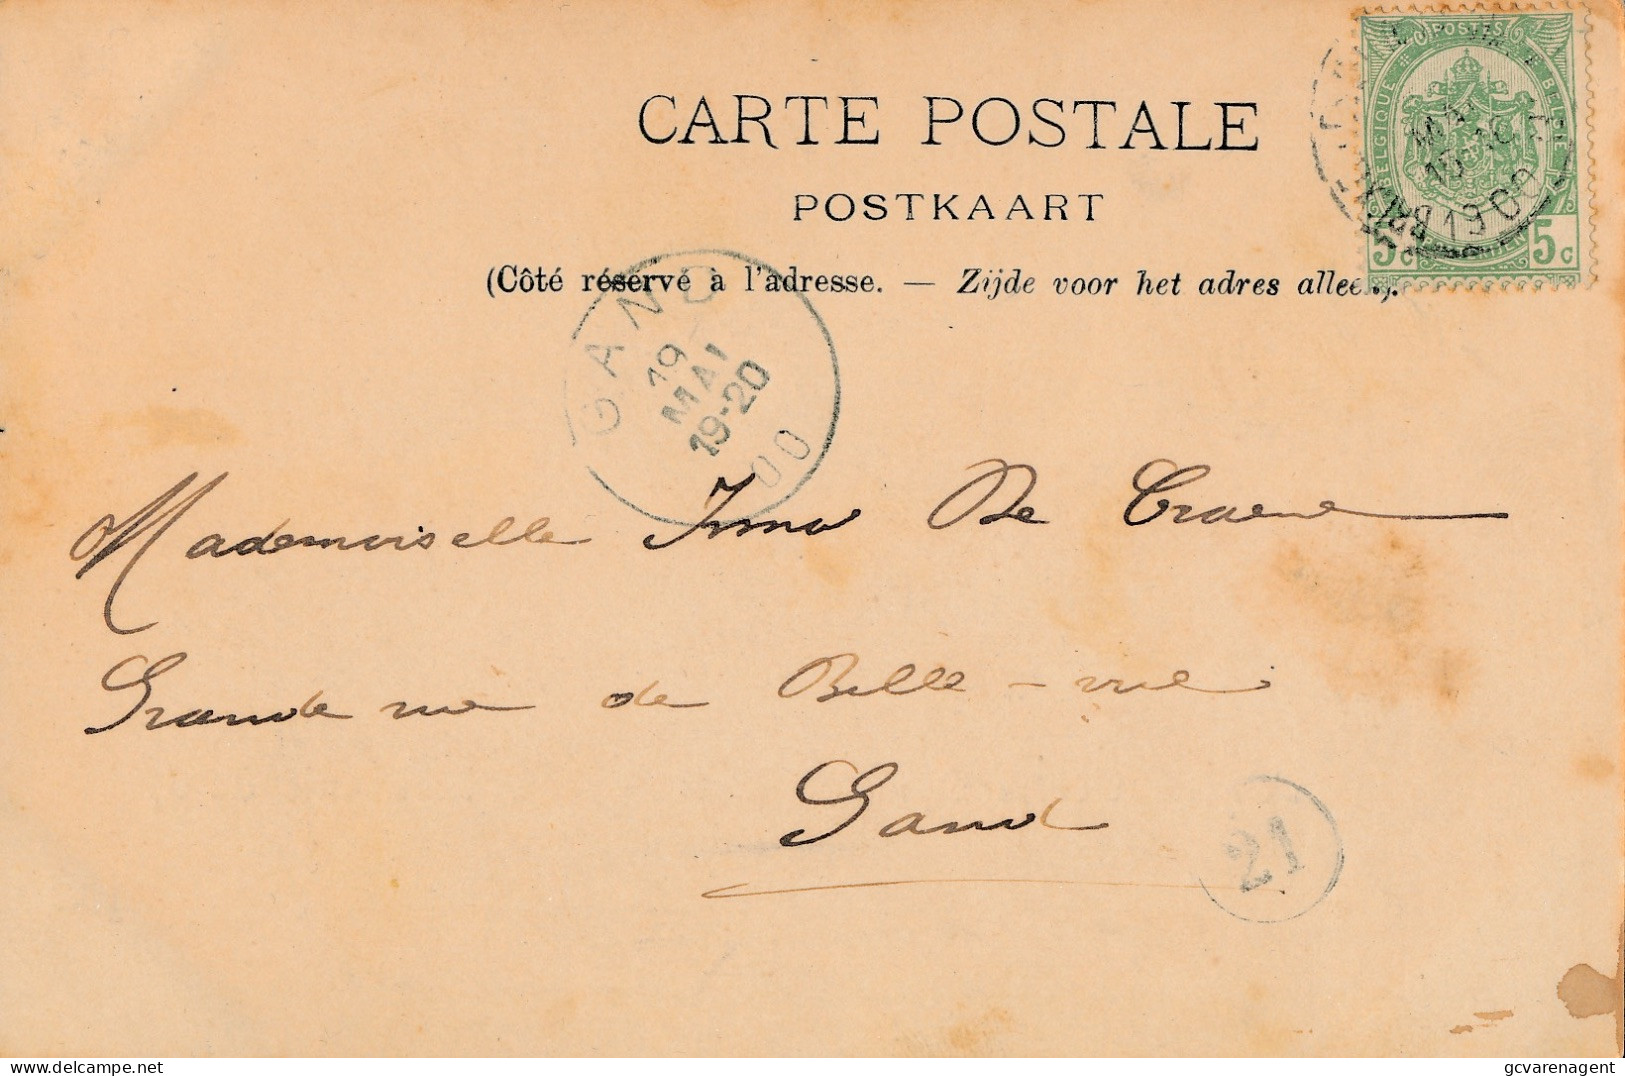 CARTE POSTALE
POSTKAART
(Côté réservé à l'adresse. — Zijde voor het adres alleen).
POSTES
BELGIQUE
BELGIË
5c 5c
1900
GAND
19
MAI
19-20
00
Mademoiselle Irma De Craene
Grande rue de Belle-vue
Gand
21
gcvarenagent